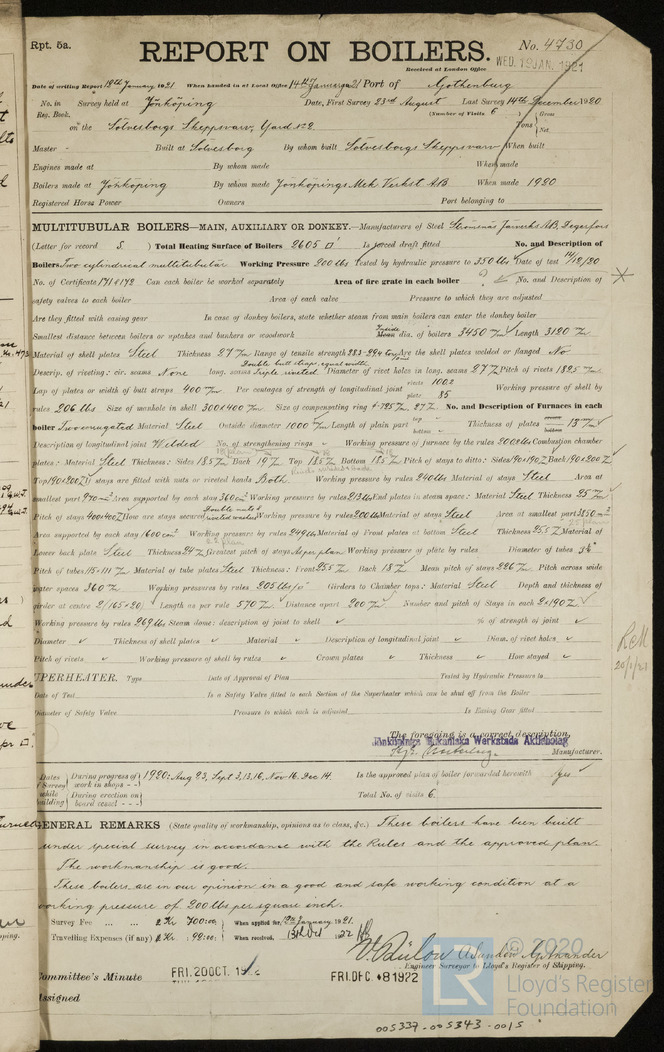 Rpt. 5a.
REPORT ON BOILERS.
No. 4730
Received at London Office WED. 19 JAN. 1921
Date of writing Report 12th January 1921 When handed in at Local Office 14th January 1921 Port of Gothenburg
No. in Survey held at Jönköping Date, First Survey 23rd August Last Survey 14th December 1920
Reg. Book. (Number of Visits 6 ) Gross
on the Sölvesborgs Skeppsvarv, Yard No 2 Tons Net
Master - Built at Sölvesborg By whom built Sölvesborgs Skeppsvarv When built
Engines made at By whom made When made
Boilers made at Jönköping By whom made Jönköpings Mek. Verkst. A.B. When made 1920
Registered Horse Power Owners Port belonging to
MULTITUBULAR BOILERS—MAIN, AUXILIARY OR DONKEY.—Manufacturers of Steel Strömsnäs Jernverks A.B. Degerfors
(Letter for record S. ) Total Heating Surface of Boilers 2605 □' Is forced draft fitted No. and Description of
Boilers Two cylindrical multitubular Working Pressure 200 lbs Tested by hydraulic pressure to 350 lbs Date of test 14/12/20
No. of Certificate 171 & 172 Can each boiler be worked separately Area of fire grate in each boiler No. and Description of
safety valves to each boiler Area of each valve Pressure to which they are adjusted
Are they fitted with easing gear In case of donkey boilers, state whether steam from main boilers can enter the donkey boiler
Smallest distance between boilers or uptakes and bunkers or woodwork Inside dia. of boilers 3450 m/m Length 3120 m/m
Material of shell plates Steel Thickness 27 m/m Range of tensile strength 28.3-29.4 tons Are the shell plates welded or flanged No
Descrip. of riveting: cir. seams None long. seams Double butt straps, equal width Triple riveted Diameter of rivet holes in long. seams 27 m/m Pitch of rivets 182.5 m/m
Lap of plates or width of butt straps 400 m/m Per centages of strength of longitudinal joint rivets 100.2 plate 85 Working pressure of shell by
rules 206 lbs Size of manhole in shell 300 x 400 m/m Size of compensating ring 27 m/m No. and Description of Furnaces in each
boiler Two corrugated Material Steel Outside diameter 1000 m/m Length of plain part top bottom Thickness of plates 13 m/m
Description of longitudinal joint Welded No. of strengthening rings Working pressure of furnace by the rules 200 lbs Combustion chamber
plates: Material Steel Thickness: Sides 18.5 m/m Back 19 m/m Top 18.5 m/m Bottom 18.5 m/m Pitch of stays to ditto: Sides 190 x 190 m/m Back 190 x 200 m/m
Top 190 x 200 m/m If stays are fitted with nuts or riveted heads Both. Working pressure by rules 240 lbs Material of stays Steel Area at
smallest part Area supported by each stay 360 cm² Working pressure by rules 213 lbs End plates in steam space: Material Steel Thickness 25 m/m
Pitch of stays 400 x 400 m/m How are stays secured Double nuts & riveted washers Working pressure by rules 200 lbs Material of stays Steel Area at smallest part 3850 m/m²
Area supported by each stay 1600 cm² Working pressure by rules 249 lbs Material of Front plates at bottom Steel Thickness 25.5 m/m Material of
Lower back plate Steel Thickness 24 m/m Greatest pitch of stays As per plan Working pressure of plate by rules Diameter of tubes 3¼"
Pitch of tubes 115 x 111 m/m Material of tube plates Steel Thickness: Front 25.5 m/m Back 18 m/m Mean pitch of stays 226 m/m Pitch across wide
water spaces 360 m/m Working pressures by rules 205 lbs/□" Girders to Chamber tops: Material Steel Depth and thickness of
girder at centre 2/165 x 20 Length as per rule 570 m/m Distance apart 200 m/m Number and pitch of Stays in each 2 x 190 m/m
Working pressure by rules 269 lbs Steam dome: description of joint to shell % of strength of joint
Diameter Thickness of shell plates Material Description of longitudinal joint Diam. of rivet holes
Pitch of rivets Working pressure of shell by rules Crown plates Thickness How stayed
UPERHEATER. Type Date of Approval of Plan Tested by Hydraulic Pressure to
Date of Test Is a Safety Valve fitted to each Section of the Superheater which can be shut off from the Boiler
Diameter of Safety Valve Pressure to which each is adjusted Is Easing Gear fitted
The foregoing is a correct description,
Jönköpings Mekaniska Werkstads Aktiebolag
Manufacturer.
Dates of Survey while building During progress of work in shops - - 1920: Aug 23, Sept 3, 13, 16, Nov 16. Dec 14. Is the approved plan of boiler forwarded herewith Yes
During erection on board vessel - - - Total No. of visits 6.
GENERAL REMARKS (State quality of workmanship, opinions as to class, &c.) These boilers have been built
under special survey in accordance with the Rules and the approved plan.
The workmanship is good.
These boilers are in our opinion in a good and safe working condition at a
working pressure of 200 lbs per square inch.
Survey Fee ... ... Kr. 700:00 When applied for, 12th January 1921.
Travelling Expenses (if any) Kr. 92:00 When received, 13th Oct 1922
Engineer Surveyor to Lloyd's Register of Shipping.
Committee's Minute FRI. 20 OCT. 1922 FRI. DEC. 8 1922
Assigned
RCM
20/1/21
© 2020
Lloyd's Register
Foundation
LR
005337-005343-0015